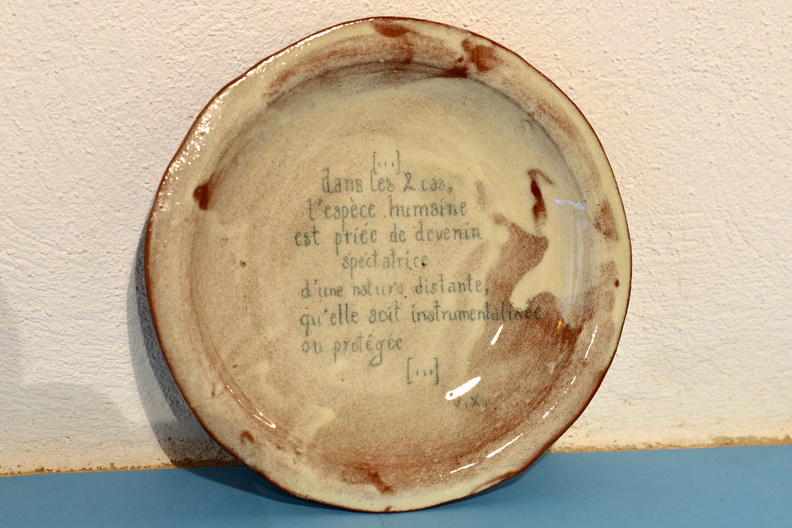 [...]
dans les 2 cas,
l'espèce humaine
est priée de devenir
spectatrice
d'une nature distante,
qu'elle soit instrumentalisée
ou protégée
[...]
v.x.